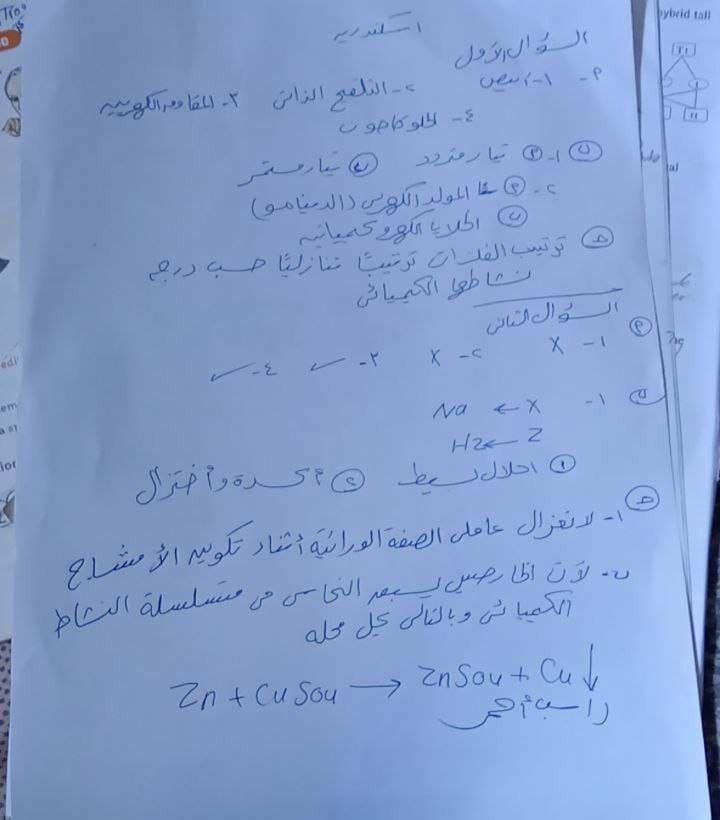 اسكندرية
السؤال الأول
٢- ١- أبيض ٢- التلقيح الذاتى ٣- المقاومة الكهربية
٤- الجلوكاجون
ب ١- ٢ تيار متردد ب تيار مستمر
٢- ٢ المولد الكهربى (الدينامو)
ب الخلايا الكهروكيميائية
ح ترتيب الفلزات ترتيبًا تنازليًا حسب درجة
نشاطها الكيميائى
السؤال الثانى
٢ ١- X ٢- X ٣- ✓ ٤- ✓
ب ١- X ← Na
Z ← H2
① احلال بسيط ② أكسدة وأختزال
ح ١- لانعزال عاملى الصفة الوراثية أثناء تكوين الأمشاج
ب- لأن الخارصين يسبق النحاس فى متسلسلة النشاط
الكيميائى وبالتالى يحل محله
Zn + CuSo4 → ZnSo4 + Cu ↓
راسب أحمر
hybrid tall